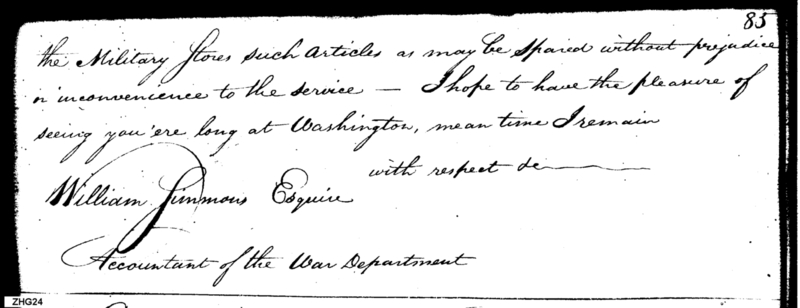 85
the Military Stores such articles as may be spared without prejudice
or inconvenience to the service — I hope to have the pleasure of
seeing you 'ere long at Washington, mean time I remain
with respect &c
William Simmons Esquire
Accountant of the War Department
ZHG24